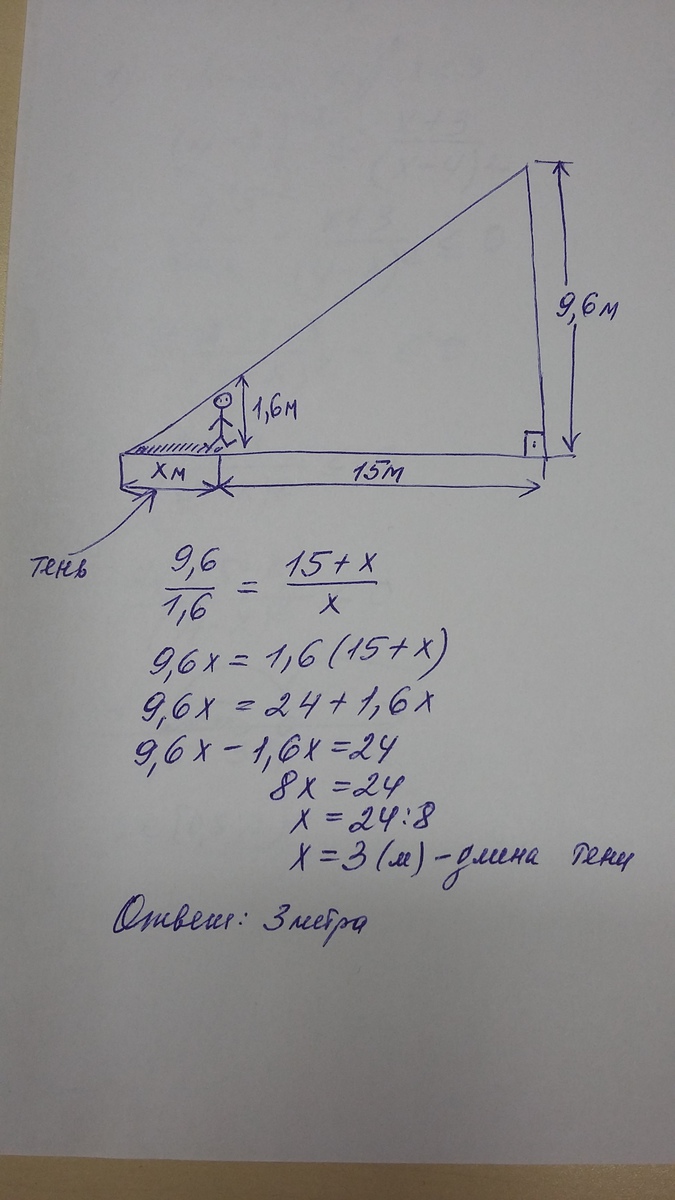 9,6м
1,6м
xм
15м
тень
9,6/1,6 = 15+x/x
9,6x = 1,6(15+x)
9,6x = 24+1,6x
9,6x - 1,6x = 24
8x = 24
x = 24:8
x = 3 (м) - длина тени
Ответ: 3 метра